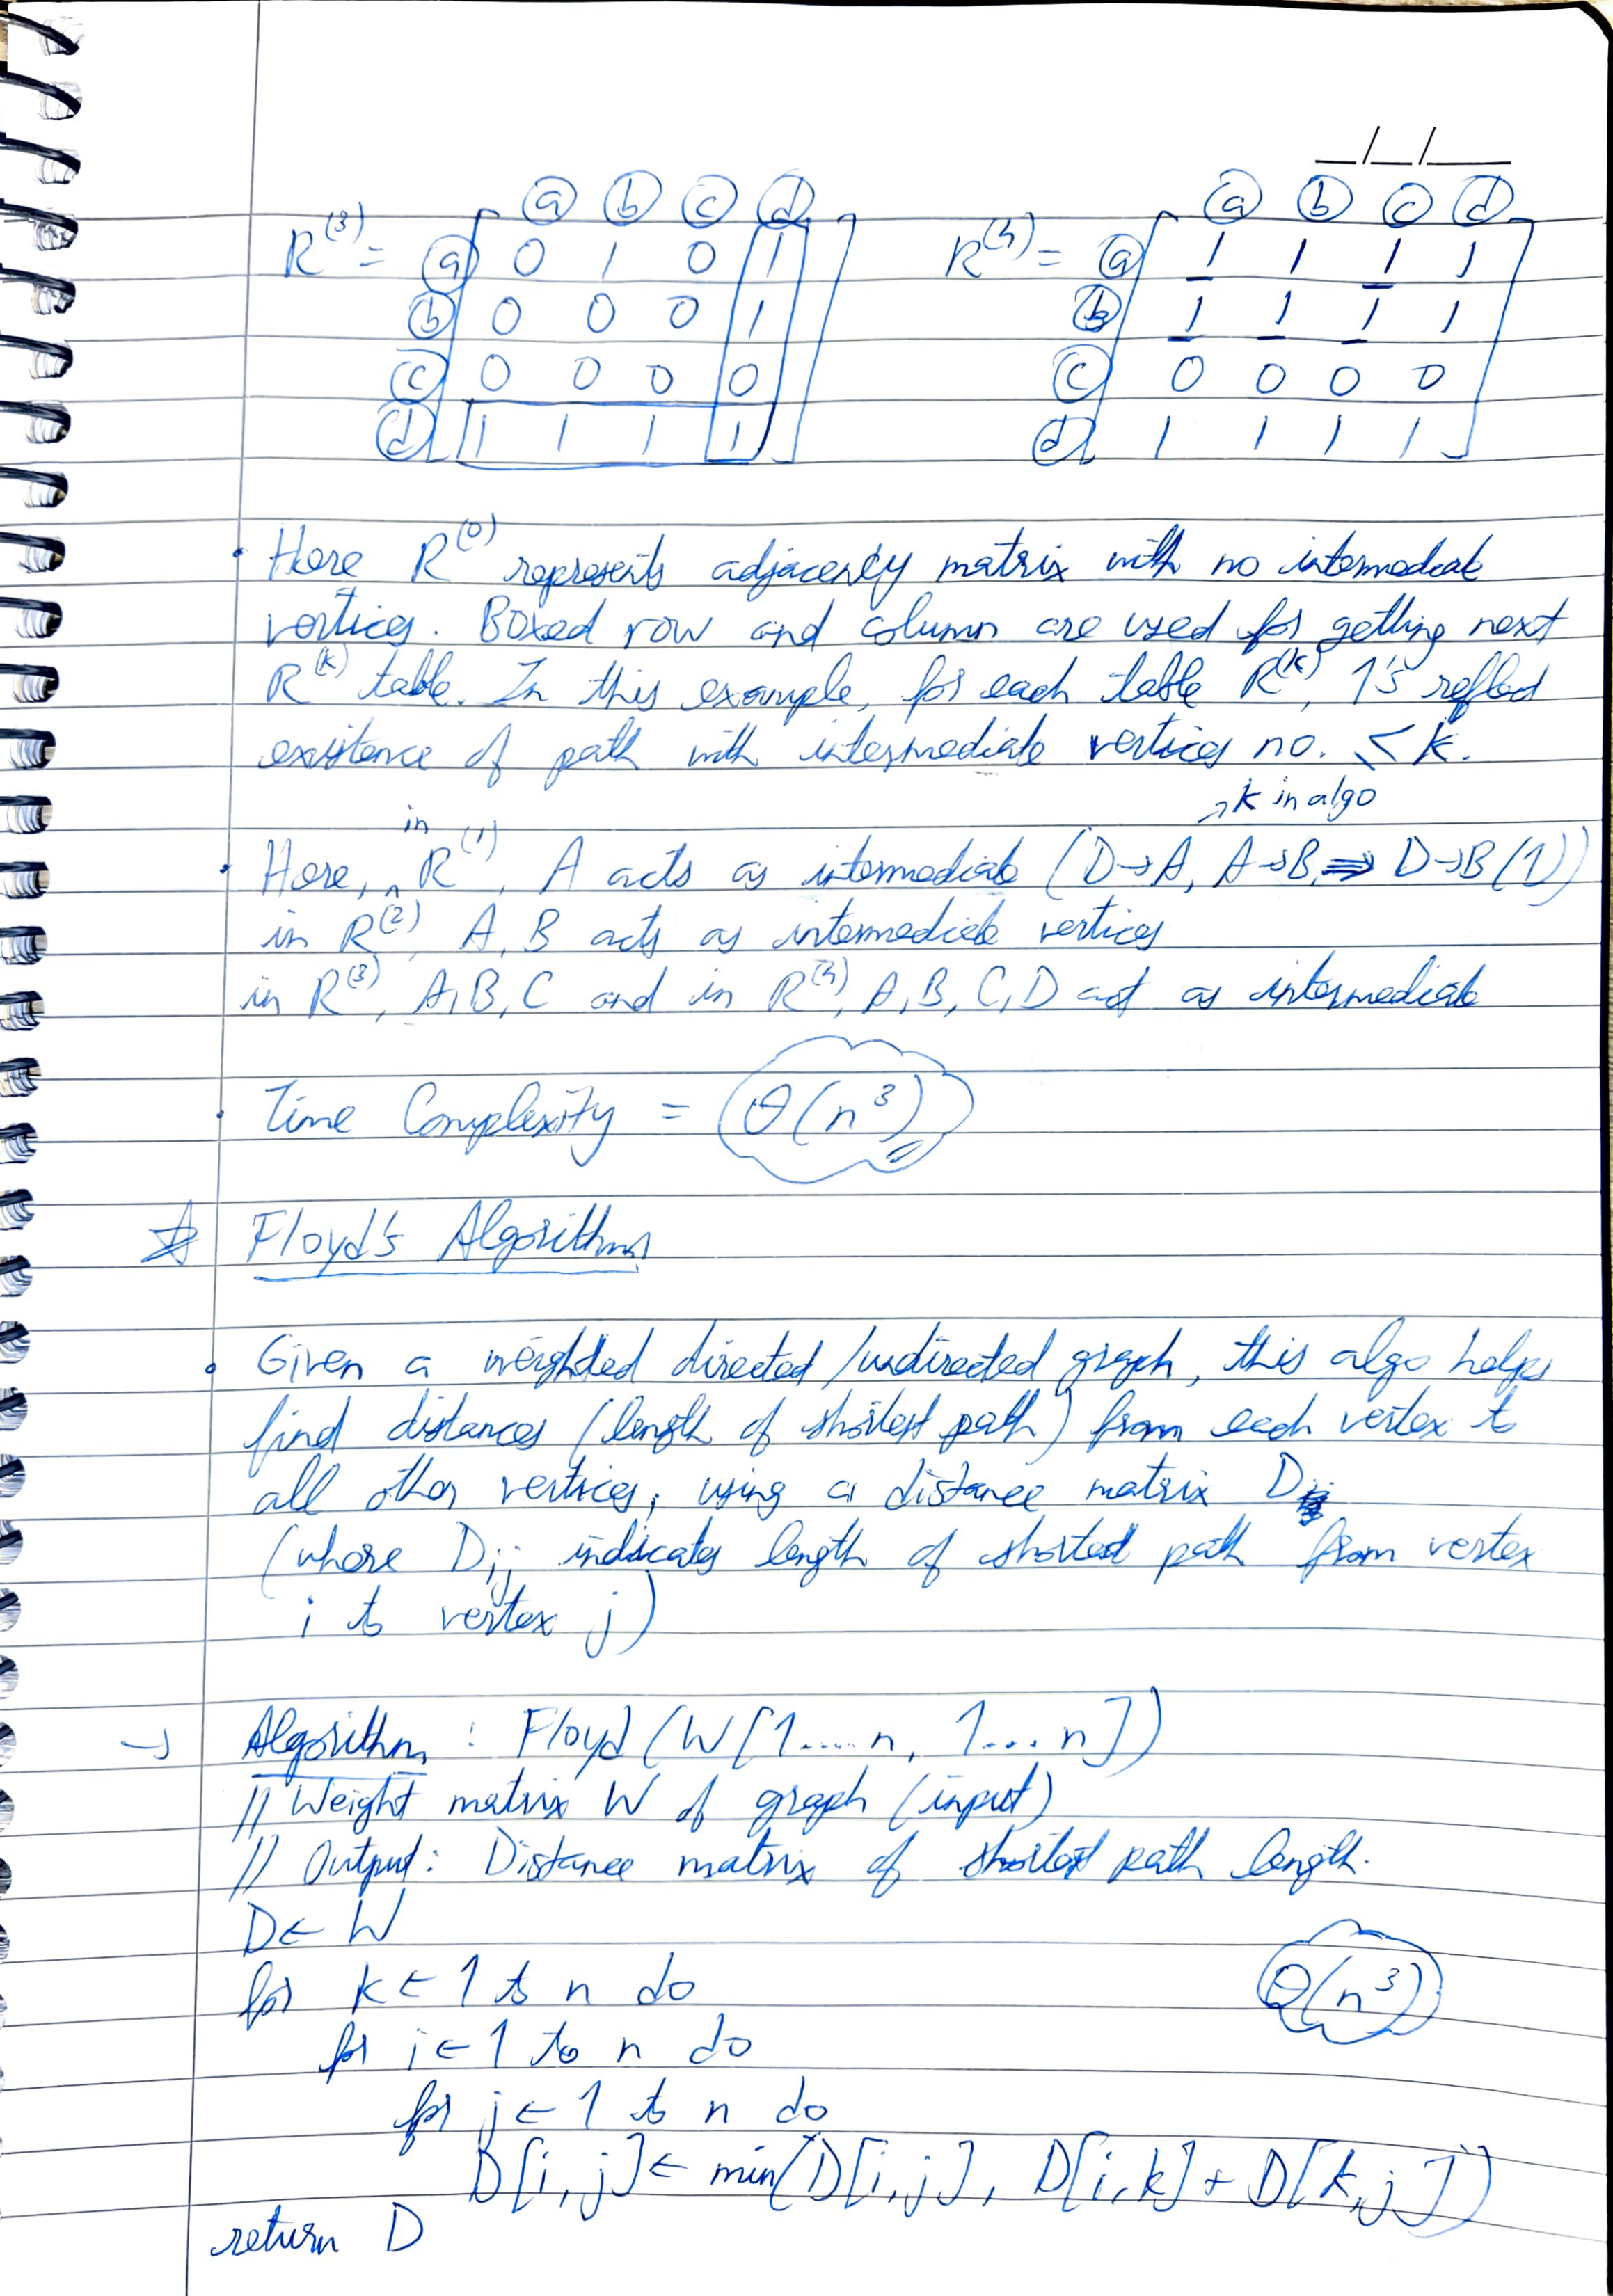 __/__/____
ⓐ ⓑ ⓒ ⓓ ⓐ ⓑ ⓒ ⓓ
R⁽³⁾ = ⓐ 0 1 0 1 R⁽⁴⁾ = ⓐ 1 1 1 1
ⓑ 0 0 0 1 ⓑ 1 1 1 1
ⓒ 0 0 0 0 ⓒ 0 0 0 0
ⓓ 1 1 1 1 ⓓ 1 1 1 1
• Here R⁽⁰⁾ represents adjacency matrix with no intermediate
vertices. Boxed row and column are used for getting next
R⁽ᵏ⁾ table. In this example, for each table R⁽ᵏ⁾, 1's reflect
existence of path with intermediate vertices no. ≤ k.
→ k in algo
• Here, in R⁽¹⁾, A acts as intermediate (D→A, A→B ⇒ D→B (1))
in R⁽²⁾, A, B acts as intermediate vertices
in R⁽³⁾, A, B, C and in R⁽⁴⁾, A, B, C, D act as intermediate
• Time Complexity = θ(n³)
☆ Floyd's Algorithm
• Given a weighted directed/undirected graph, this algo helps
find distances (length of shortest path) from each vertex to
all other vertices, using a distance matrix D
(where Dij indicates length of shortest path from vertex
i to vertex j)
→ Algorithm : Floyd (W[1.....n, 1...n])
// Weight matrix W of graph (input)
// Output: Distance matrix of shortest path length.
D ← W
for k ← 1 to n do θ(n³)
for i ← 1 to n do
for j ← 1 to n do
D[i, j] ← min(D[i, j], D[i, k] + D[k, j])
return D